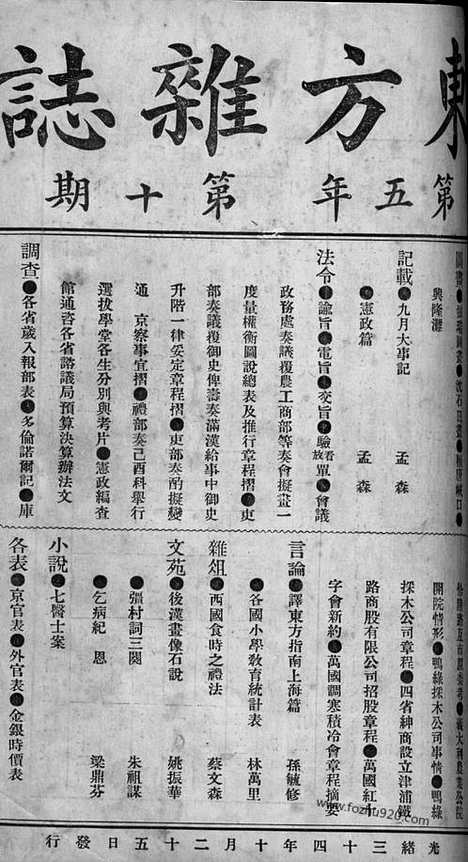 東方雜誌
第五年第十期
興隆灘
記載●九月大事記 孟森
●憲政篇 孟森
法令●諭旨●電旨●交旨●驗看放單●會議
政務處奏議覆農工商部等奏會擬畫一
度量權衡圖說總表及推行章程摺●吏
部奏議覆御史俾壽奏滿漢給事中御史
升階一律妥定章程摺●吏部奏酌擬變
通 京察事宜摺●禮部奏己酉科舉行
選拔學堂各生分別與考片●憲政編查
館通咨各省諮議局預算決算辦法文
調查●各省歲入報部表●多倫諾爾記●庫
開院情形●鴨綠採木公司事情●鴨綠
採木公司章程●四省紳商設立津浦鐵
路商股有限公司招股章程●萬國紅十
字會新約●萬國調寒積冷會章程摘要
言論●譯東方指南上海篇 孫毓修
●各國小學教育統計表 林萬里
雜俎●西國食時之禮法 蔡文森
文苑●後漢畫像石說 姚振華
●彊村詞三闋 朱祖謀
●乞病紀恩 梁鼎芬
小說●七醫士案
各表●京官表●外官表●金銀時價表
光緒三十四年十月二十五日發行
www.fozhu920.com